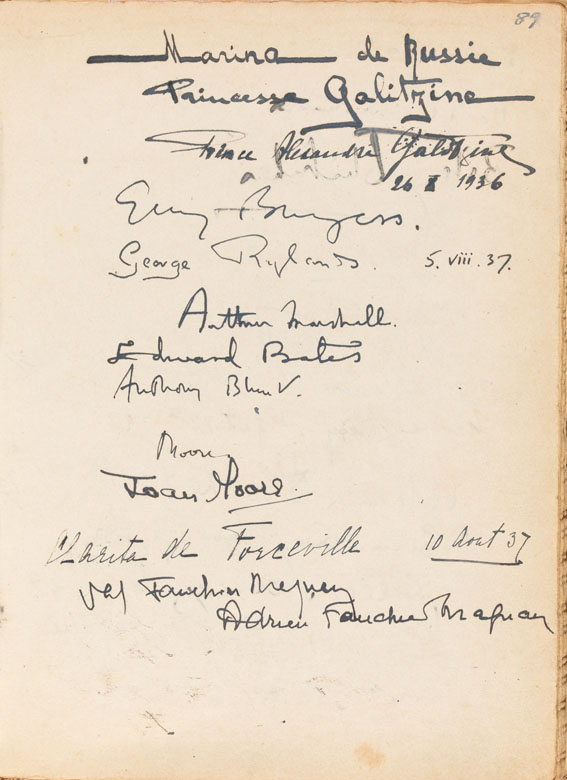 89
Marina de Russie
Princesse Galitzine
Prince Alexandre Galitzine
26 X 1936
Guy Burgess.
George Rylands. 5. viii. 37.
Arthur Marshall.
Edward Bates
Anthony Blunt.
Moore.
Joan Moore.
Clarita de Forceville 10 Aout 37
Val Faucher Magnan
Adrien Faucher Magnan